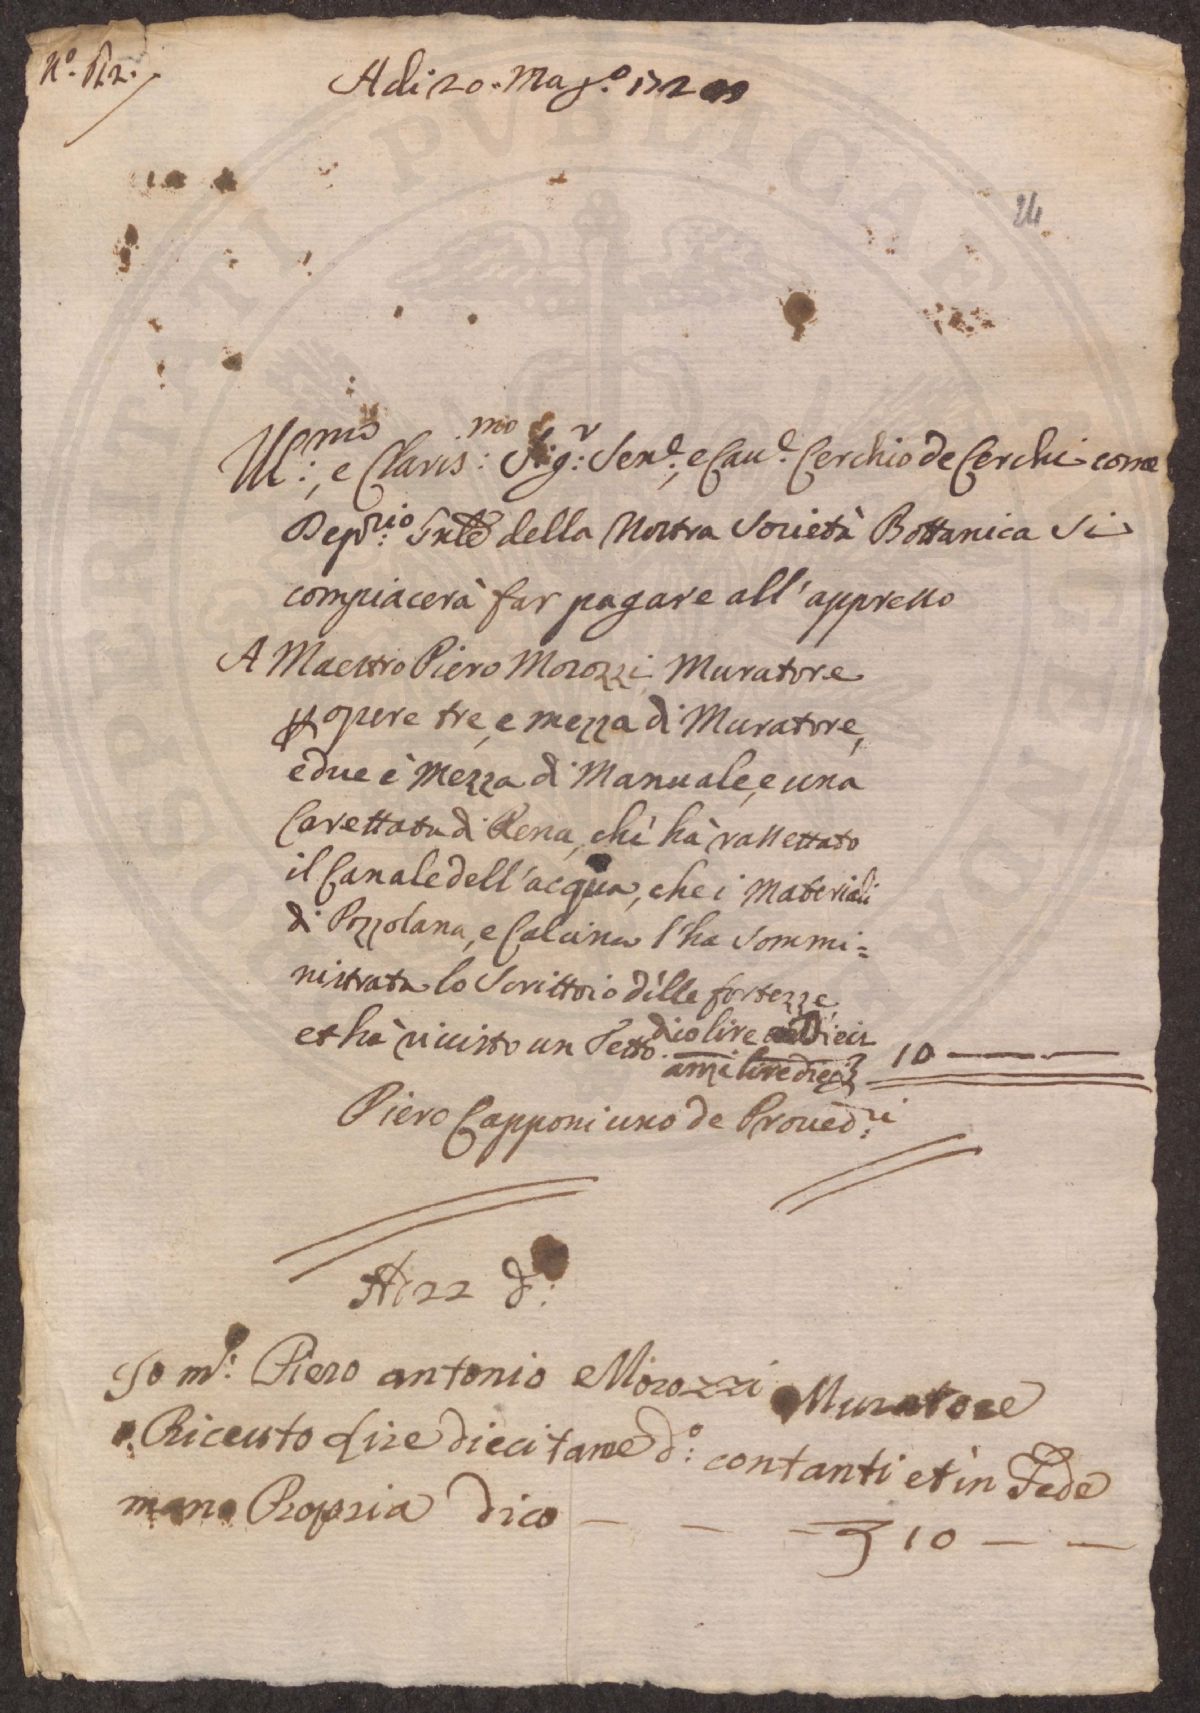 N.° 512.
Adi 20. Mag.° 172
24
Ill:mo, e Claris:mo Sig:r Sen:e, e Cau:e Cerchio de Cerchi come
Dep:rio della Nostra Società Bottanica si
compiacerà far pagare all'appresso
A Maestro Piero Morozzi Muratore
opere tre, e mezza di Muratore,
e due è Mezza di Manuale, e una
Carettata di Rena, chè hà rassettato
il Canale dell'acqua, che i Materiali
di Pozzolana, e Calcina l'ha sommi=
nistrata lo Scrittoio delle fortezze
et hà riuisto un Tetto. dico lire Dieci
anzi lire dieci 10 — —
Piero Capponi uno de Proued:ri
A 22 d:o
Io m:o Piero antonio Morozzi Muratore
Riceuto lire dieci d:o contanti et in Fede
mano Propria dico — — — 10 — —
PVBLICAE